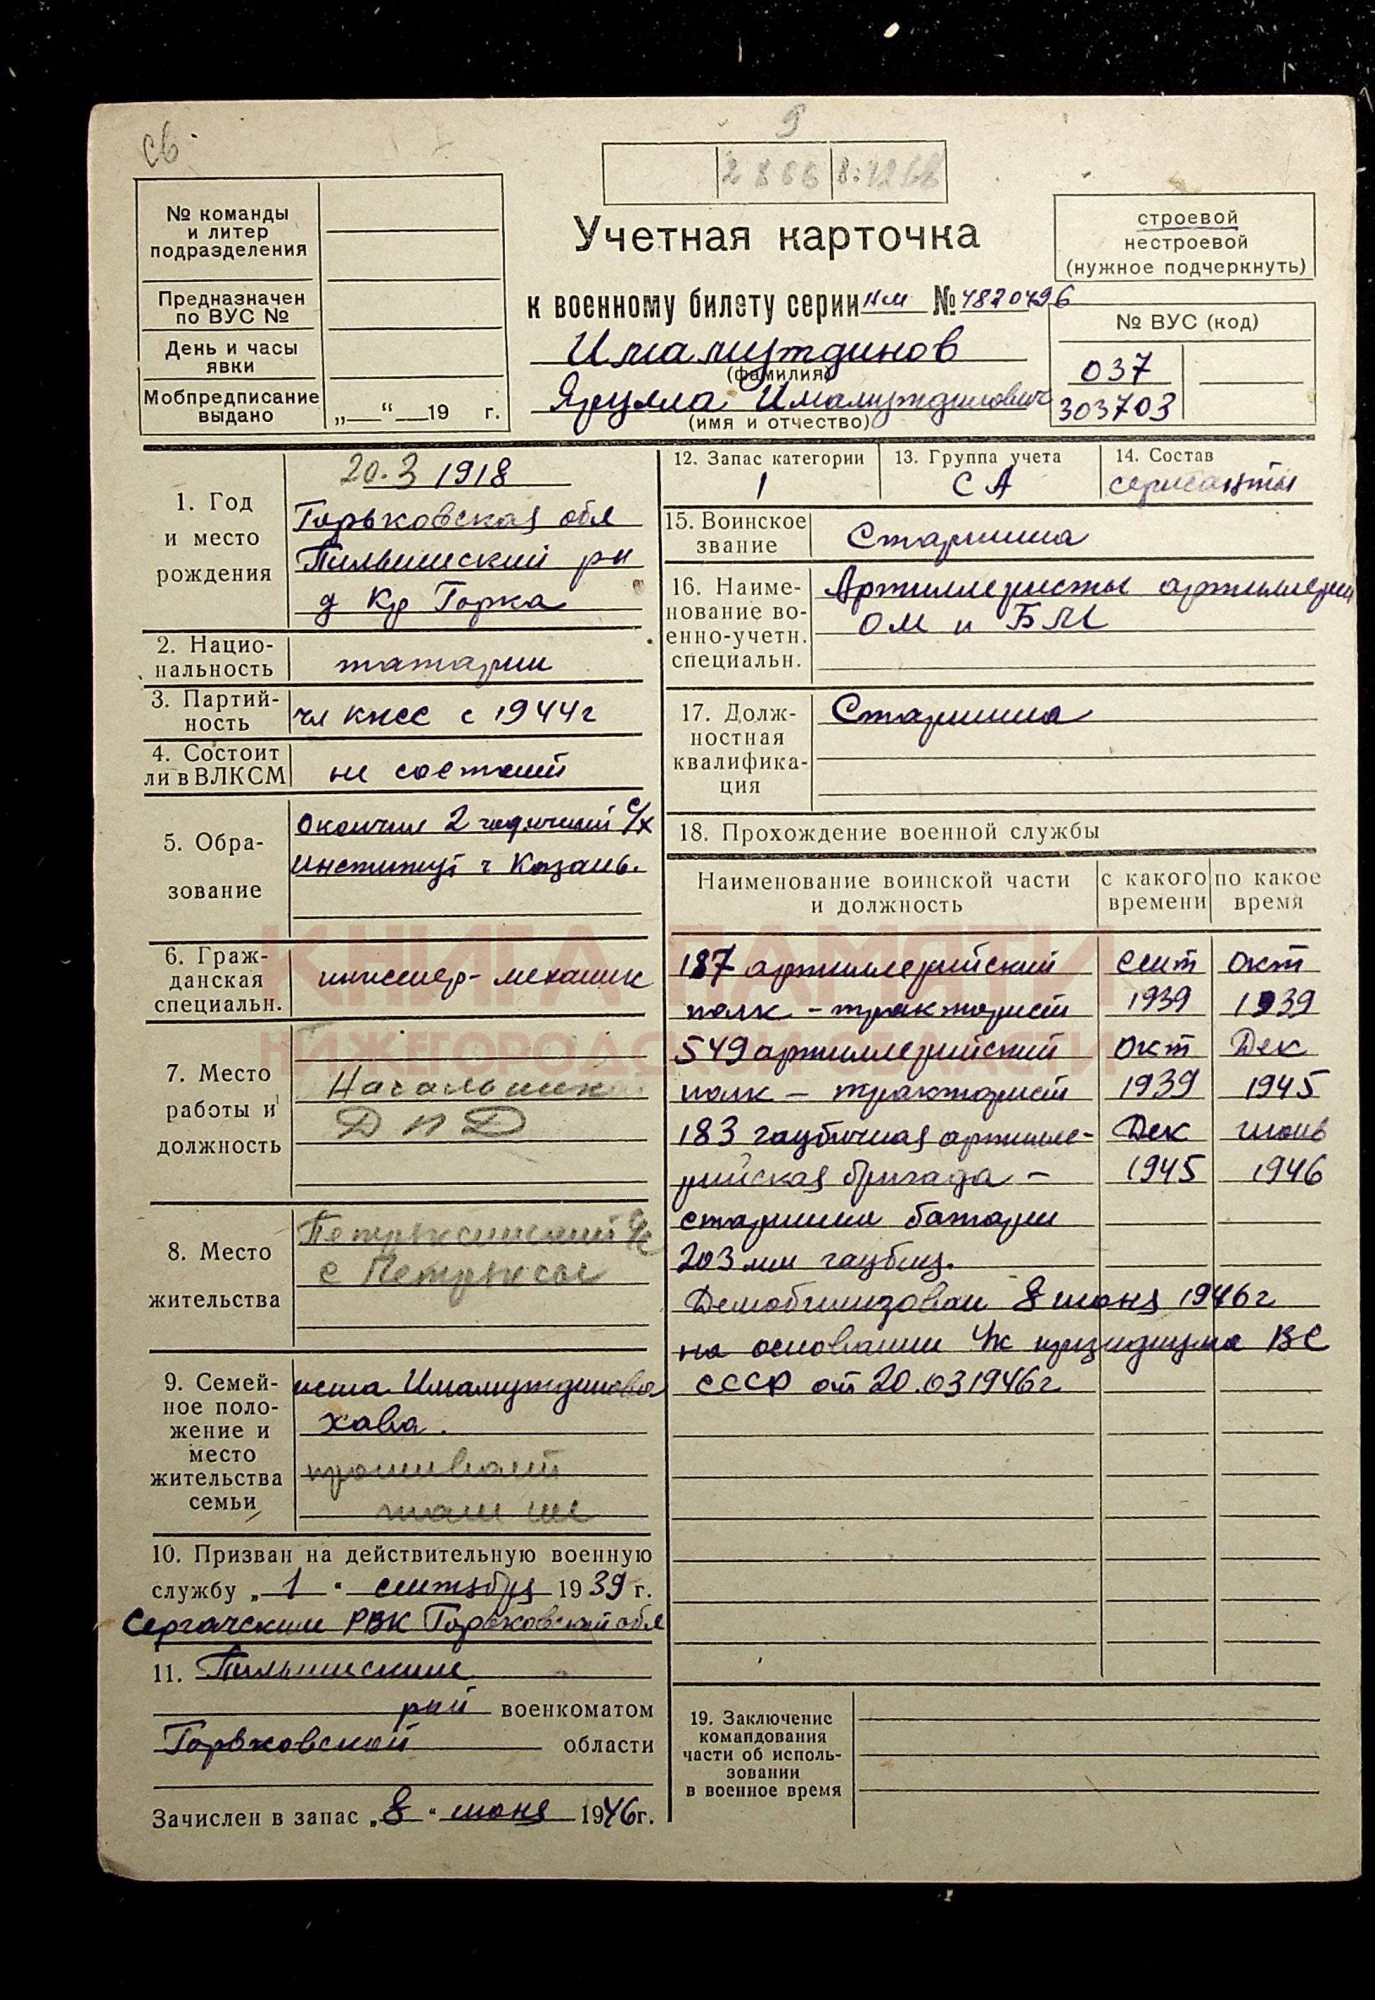 св
9
2866 8:4268
№ команды
и литер
подразделения
Предназначен
по ВУС №
День и часы
явки
Мобпредписание
выдано
„ “ 19 г.
Учетная карточка
к военному билету серии нм № 4820496
Имамутдинов
(фамилия)
Ярулла Имамутдинович
(имя и отчество)
строевой
нестроевой
(нужное подчеркнуть)
№ ВУС (код)
037
303703
1. Год
и место
рождения
20.3 1918
Горьковская обл
Пильнинский рн
д Кр Горка
2. Нацио-
нальность
татарин
3. Партий-
ность
чл кпсс с 1944г
4. Состоит
ли в ВЛКСМ
не состоит
5. Обра-
зование
Окончил 2 годичный с/х
институт г Казань.
6. Граж-
данская
специальн.
инженер-механик
7. Место
работы и
должность
Начальник
ДПД
8. Место
жительства
Петряксинский с/с
с Петряксы
9. Семей-
ное поло-
жение и
место
жительства
семьи
жена Имамутдинова
хава.
проживает
там же
10. Призван на действительную военную
службу „ 1 “ сентября 1939 г.
Сергачским РВК Горьковской обл
11. Пильнинским
рай военкоматом
Горьковской области
Зачислен в запас „ 8 “ июня 1946г.
12. Запас категории
1
13. Группа учета
СА
14. Состав
сержанты
15. Воинское
звание
Старшина
16. Наиме-
нование во-
енно-учетн.
специальн.
Артиллеристы артиллерии
ОМ и БМ
17. Долж-
ностная
квалифика-
ция
Старшина
18. Прохождение военной службы
Наименование воинской части
и должность
с какого
времени
по какое
время
187 артиллерийский сент окт
полк - тракторист 1939 1939
549 артиллерийский окт Дек
полк - тракторист 1939 1945
183 гаубичная артилле- Дек июнь
рийская бригада - 1945 1946
старшина батареи
203 мм гаубиц.
Демобилизован 8 июня 1946г
на основании Ук президиума ВС
СССР от 20.03 1946г
19. Заключение
командования
части об исполь-
зовании
в военное время
КНИГА ПАМЯТИ
НИЖЕГОРОДСКОЙ ОБЛАСТИ